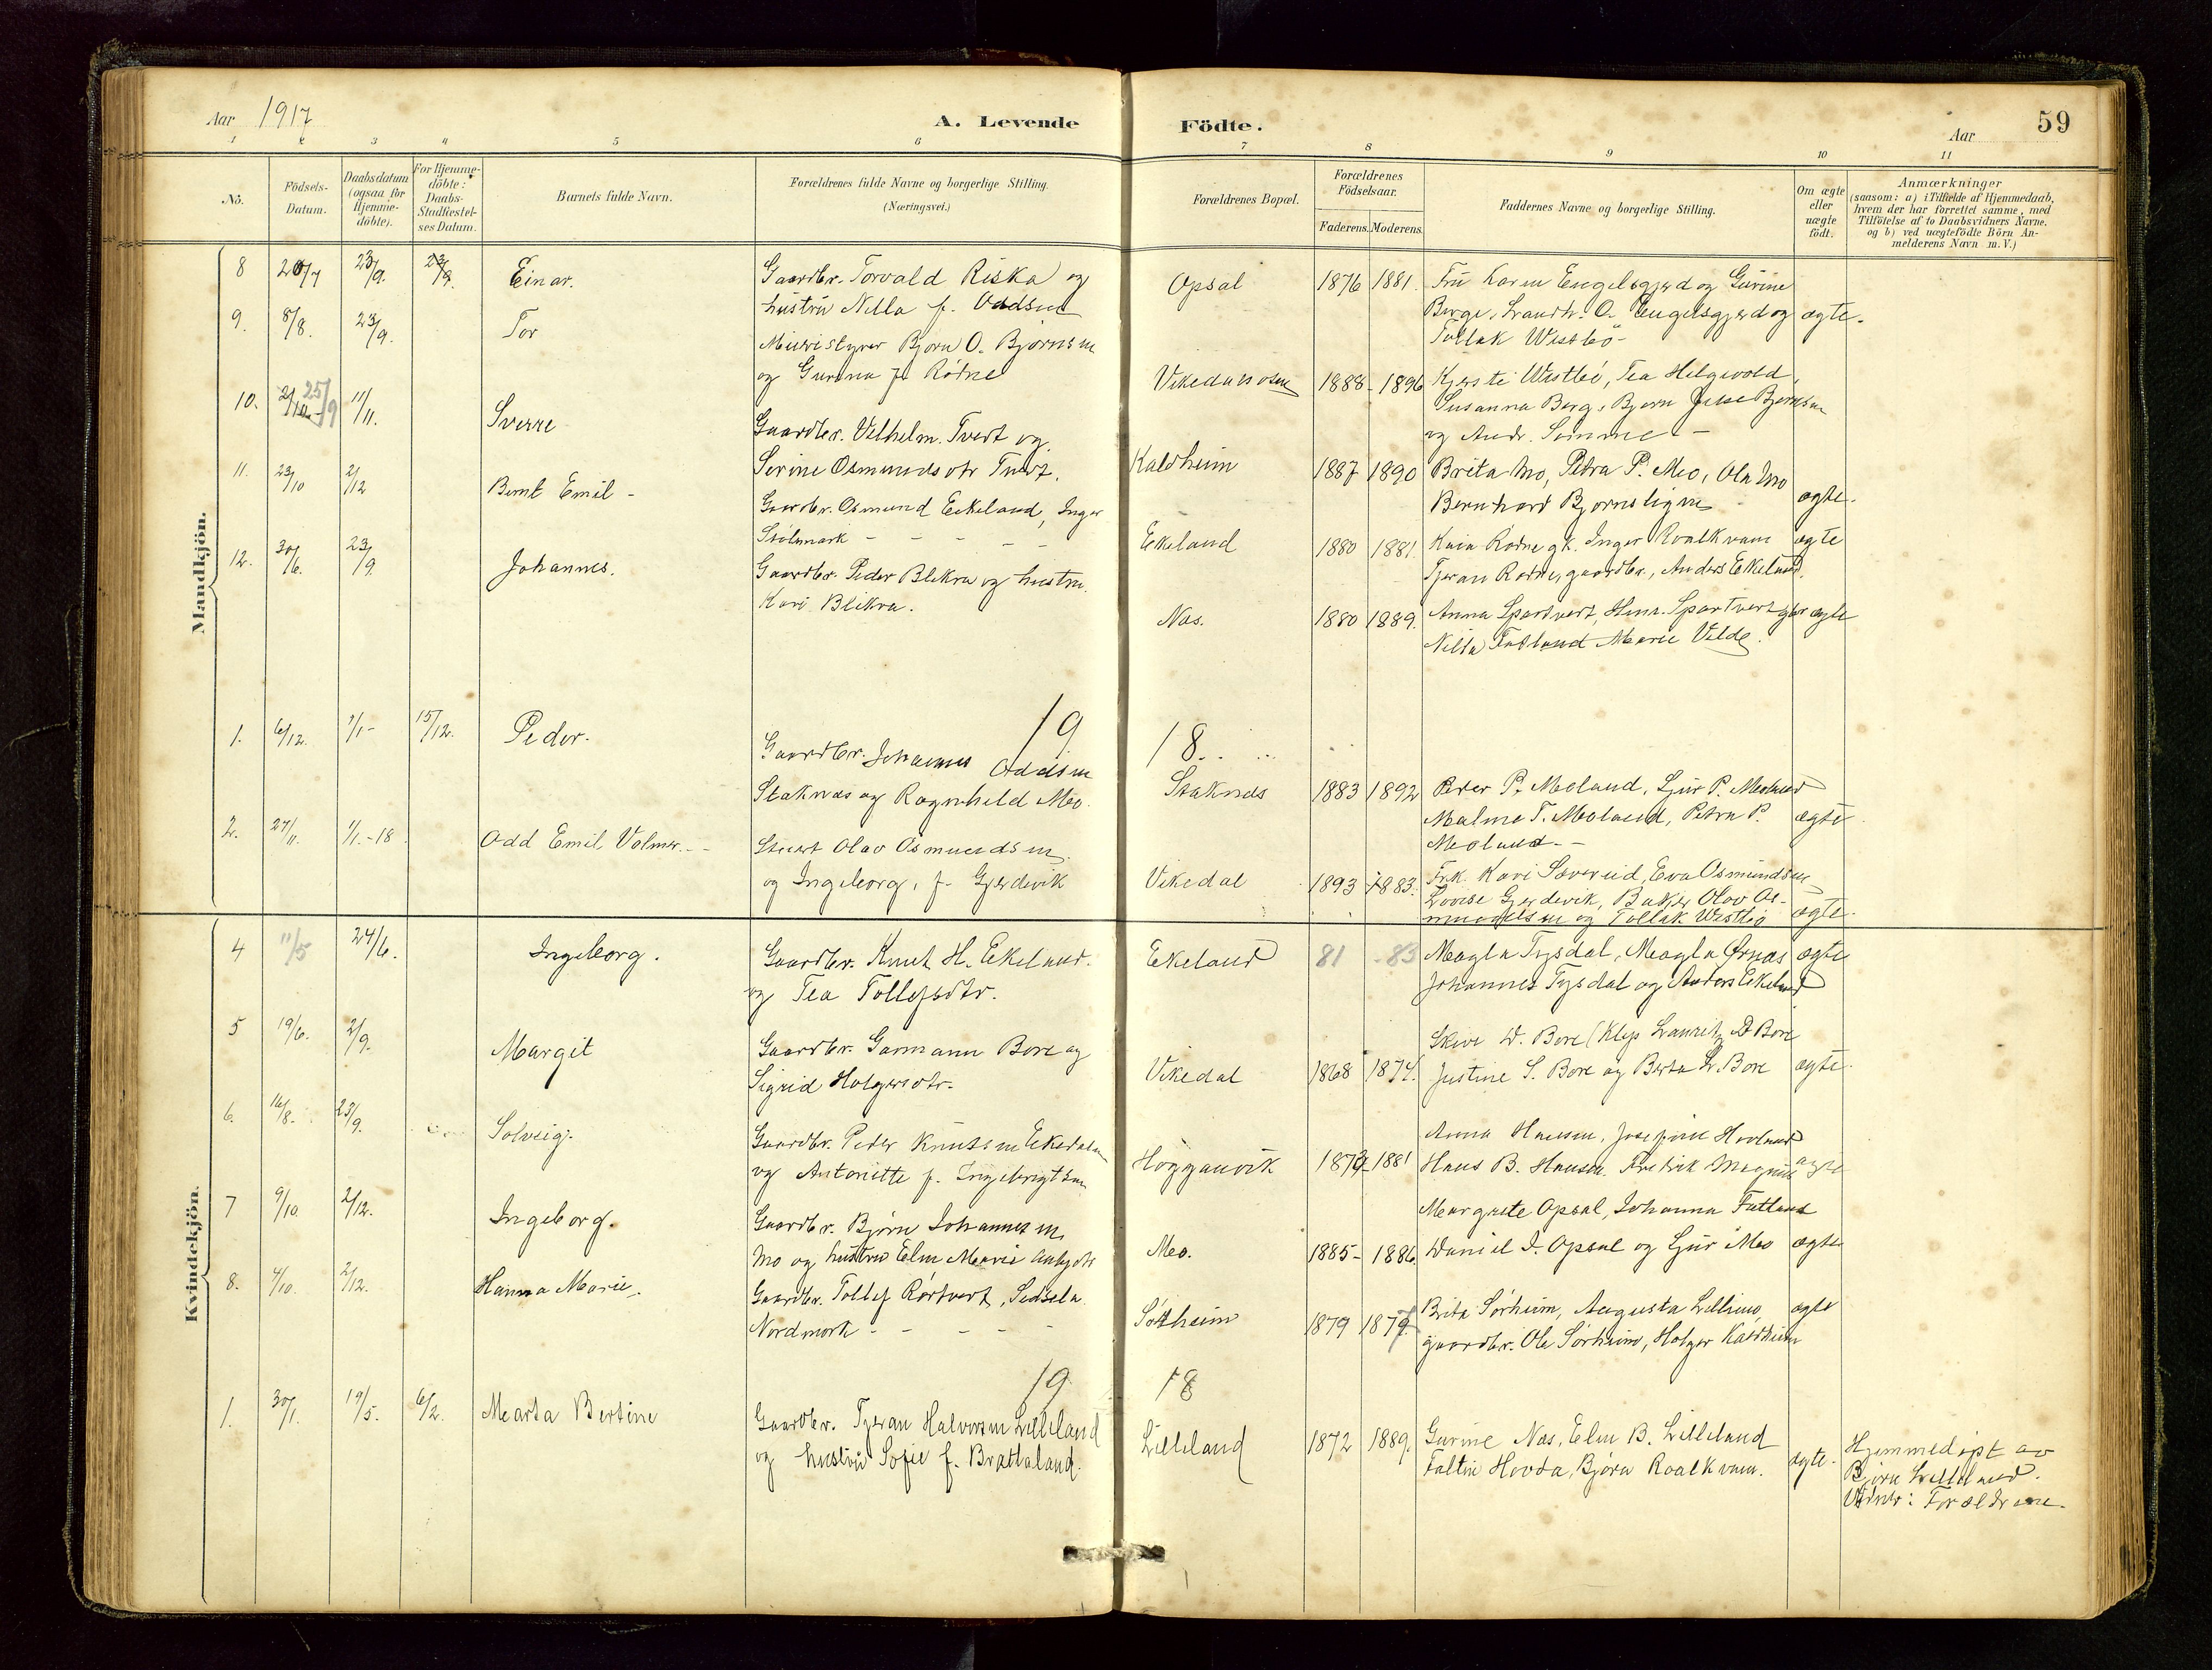 Aar 1917
A. Levende
Födte.
Aar
59
1 2 3 4 5 6 7 8 9 10 11
Nö.
Födsels-
Datum.
Daabsdatum
(ogsaa for
Hjemme-
döbte).
For Hjemme-
döbte:
Daabs-
Stadfæstel-
ses Datum.
Barnets fulde Navn.
Forældrenes fulde Navne og borgerlige Stilling.
(Næringsvei.)
Forældrenes Bopæl.
Forældrenes
Födselsaar.
Faderens. Moderens.
Faddernes Navne og borgerlige Stilling.
Om ægte
eller
uægte
födt.
Anmærkninger
(saasom: a) i Tilfælde af Hjemmedaab,
hvem der har forrettet samme, med
Tilföielse af to Daabsvidners Navne.
og b) ved uægtefödte Börn An-
melderens Navn m. V.)
Mandkjön.
8 20/7 23/9. 23/9. Einar. Gaardbr. Torvald Riska og
hustru Nilla f. Oddsen
Opsal 1876 1881. Fru Karen Engelsgjerd og Gurine
Berge, Landh. O. Engelsgjerd og ægte.
Tollak Westbö
9. 8/8. 23/9. Tor Bjørn O. Bjørnsen
og Gurina f. Rödne
1888 - 1896 Kjersti Westbö, Tea Helgevold,
Susanna Berg, Bjørn Bjørnsen
og Andr.
10. 25/9 11/11. Sverre Gaardbr. Vilhelm Tvert og
Serine Osmundsdtr Tvert.
Kaldheim 1887 1890 Brita Mo, Petra P. Mo, Ola Mo
Bernhard ægte.
11. 23/10 2/12 Bernt Emil - Gaardbr. Osmund Ekeland, Inger
Stölmark - - - - -
Ekeland 1880 1881. Kaia Rödne gk. Inger Roalkvam ægte
Tjeran Rödne, gaardbr., Anders Ekeland.
12. 30/6. 23/9. Johannes. Gaardbr. Peder Blikra og hustru
Kari Blikra.
Næs. 1880 1889.
Nilla Fatland Marie Velde. ægte
1918.
1. 6/12. 1/1- 15/12. Peder. Gaardbr. Johannes Oddsen
Staknæs og Ragnhild Mo.
Staknæs 1883 1892 Peder P. Moland, Sjur P. Moland
Malme T. Moland, Petra P. ægte
Moland. -
2. 27/11. 1/1.-18. Odd Emil Volmer. - Olav Osmundsen
og Ingeborg, f. Gjerdevik
Vikedal 1893 1883. Frk. Kari Eva Osmundsen
Lovise Gjerdevik, Baker Olav Os-
mundsen og Tollak Westbö ægte.
Kvindekjön.
4 11/5 24/6. Ingeborg. Gaardbr. Knut H. Ekeland.
og Tea Tollefsdtr.
Ekeland 81 - 83 Magla Tysdal, Magla Ørnæs ægte
Johannes Tysdal og Anders Ekeland
5 19/6. 2/9. Margit Gaardbr. Gamann Bore og
Sigrid Holgersdtr.
Vikedal 1868 1874. W. Bore Lauritz D Bore
Justine S. Bore og Berta L. Bore ægte.
6. 16/8. 23/9. Solveig. Gaardbr. Peder Knutsen
og Antonette f. Ingebrigtsen
Hogganvik 1879 - 1881 Anna Hansen, Josefine Hovland
Hans B. Hansen. Fredrik Magnus ægte
7 9/10 2/12. Ingeborg. Gaardbr. Bjørn Johannesen
Mo og hustru Elen Marie
Mo. 1885 - 1886. Margrete Opsal, Johanna Fatland
Daniel J. Opsal og Sjur Mo ægte
8. 4/10. 2/12. Hanna Marie. Gaardbr. Tollef Rörtvert,
Nordmork - - - - -
Sörheim 1879 1877. Brita Sørheim, Augusta Lillemo, ægte
gaardbr. Ole Sørheim, Holger Kaldheim
1918
1. 30/1. 19/5. 6/2. Marta Bertine Gaardbr. Tjeran Halvorsen Lilleland
og hustru Sofie f. Brattaland.
Lilleland 1872 1889. Gurine Næs, Elen B. Lilleland
Faltin Hovda, Bjørn Roalkvam. ægte.
Hjemmedöpt av
Bjørn Lilleland.
Vidner: Forældrene.